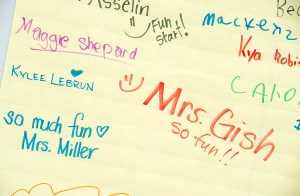 Asselin
Fun
Start!
Mackenz
Kya Robi
Maggie Shepard
Kylee Lebrun
Mrs. Gish
so fun!!
so much fun
Mrs. Miller